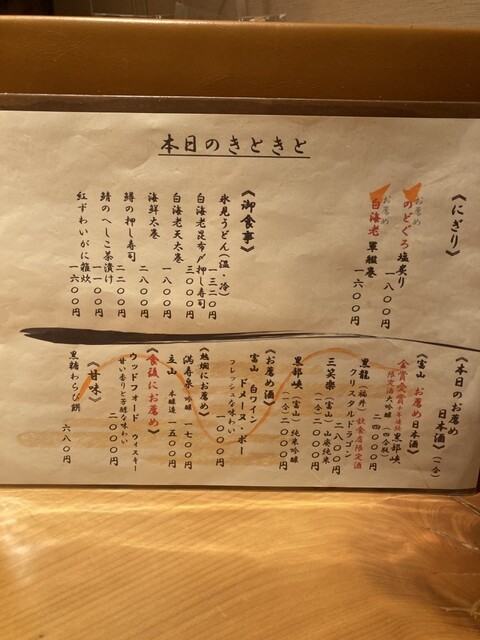 本日のきときと
《にぎり》
お薦め
のどぐろ塩炙り
一八〇〇円
お薦め
白海老 軍艦巻
一六〇〇円
《御食事》
氷見うどん(温・冷)
一三二〇円
白海老昆布〆押し寿司
三〇〇〇円
白海老天太巻
一八〇〇円
海鮮太巻
二八〇〇円
鱒の押し寿司
二二〇〇円
鯖のへしこ茶漬け
一一〇〇円
紅ずわいがに雑炊
一六〇〇円
《本日のお薦め
日本酒》
(一合)
《富山 お薦め日本酒》
金賞受賞十年連続黒部峡
限定酒 大吟醸 (四合瓶)
二四〇〇〇円
黒龍(福井) 飲食店限定酒
クリスタルドラゴン
二八〇〇円
三笑楽(富山)山廃純米
(一合)二〇〇〇円
黒部峡(富山)純米吟醸
(一合)二〇〇〇円
《お薦め酒》
富山 白ワイン
ドメーヌ・ボー
フレッシュな味わい
一〇〇〇円
《熱燗にお薦め》
満寿泉 吟醸 一七〇〇円
立山 本醸造 一五〇〇円
《食後にお薦め》
ウッドフォード ウィスキー
甘い香りと芳醇な味わい
二〇〇〇円
《甘味》
黒糖わらび餅
六八〇円